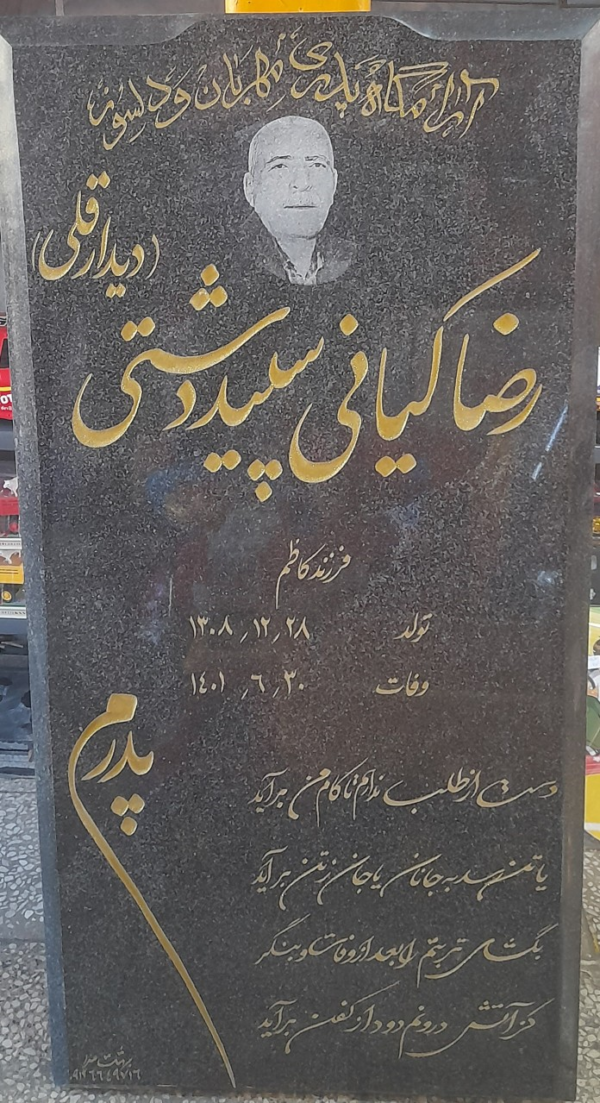 آرامگاه پدری مهربان و دلسوز
(دیدارقلی)
رضا کیانی سپیددشتی
فرزند کاظم
تولد ۱۳۰۸٫۱۲٫۲۸
وفات ۱٤۰۱٫٦٫۳۰
پدرم
دست از طلب ندارم تا کام من برآید
یا تن رسد به جانان یا جان ز تن برآید
بگشای تربتم را بعد از وفات و بنگر
کز آتش درونم دود از کفن برآید